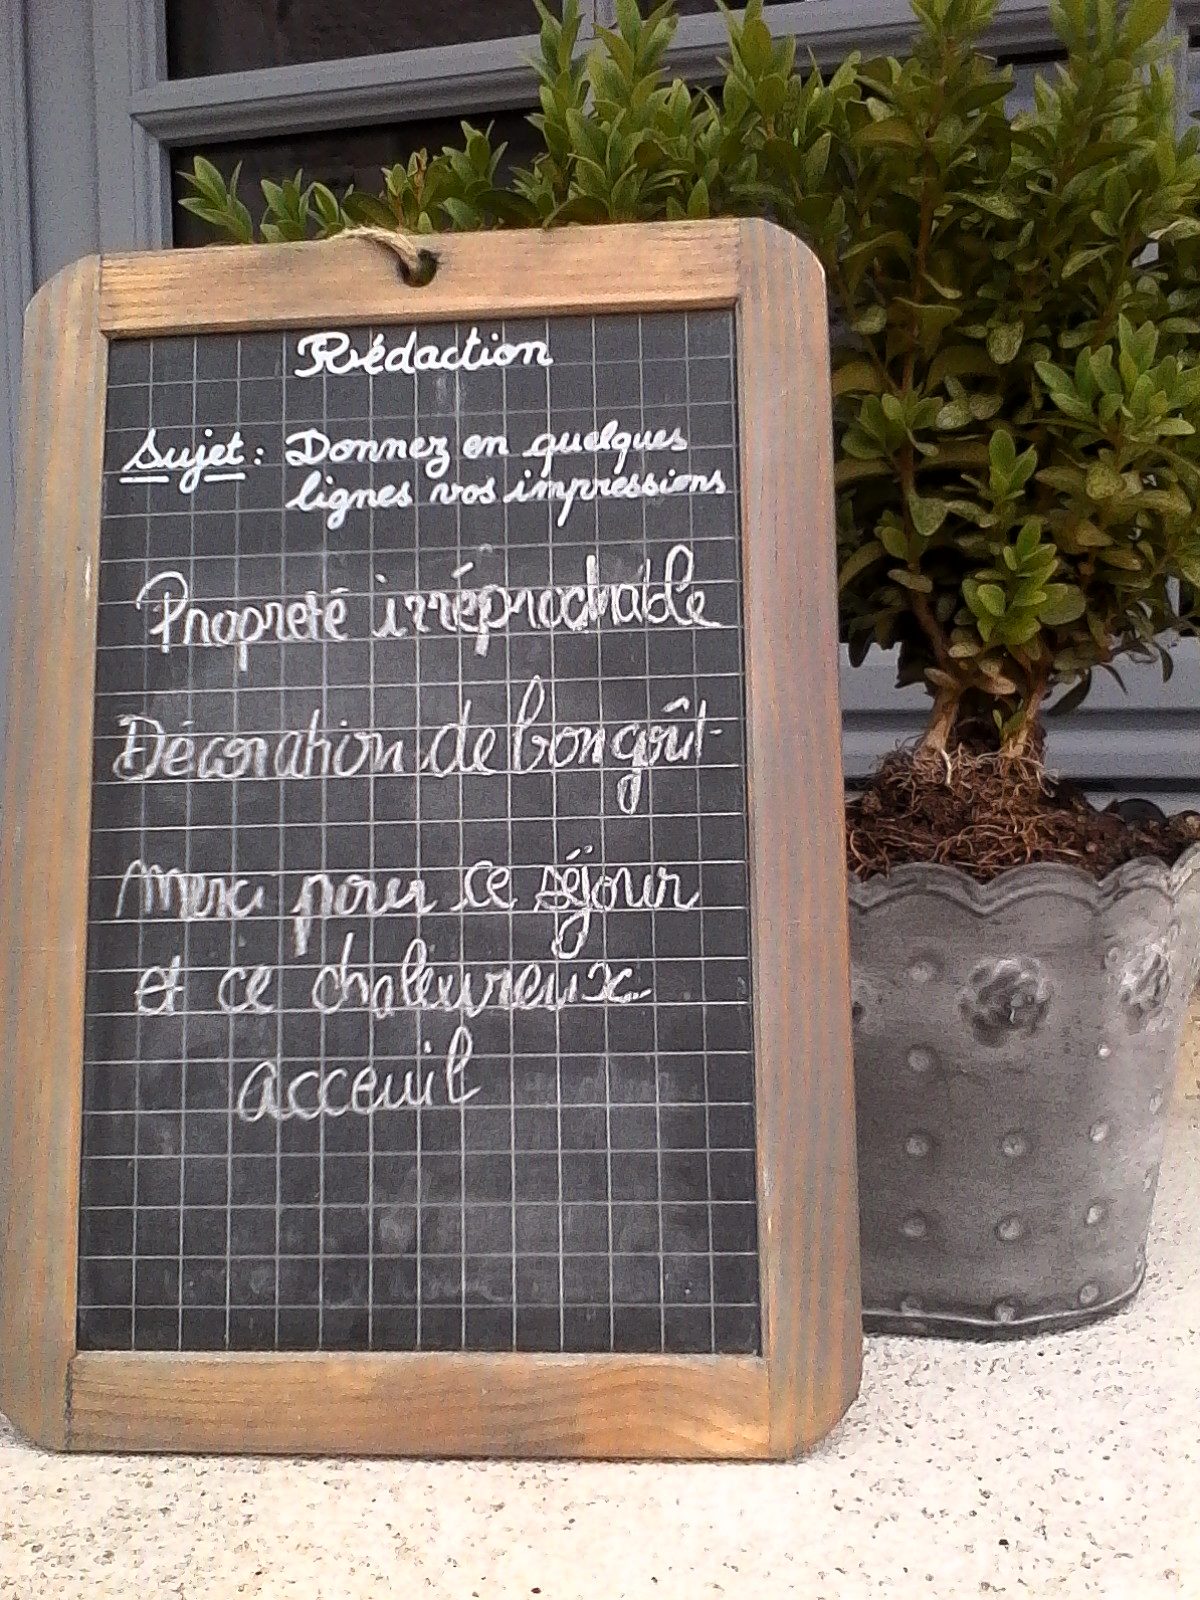 Rédaction
Sujet : Donnez en quelques
lignes vos impressions
Propreté irréprochable
Décoration de bon goût
Merci pour ce séjour
et ce chaleureux
acceuil